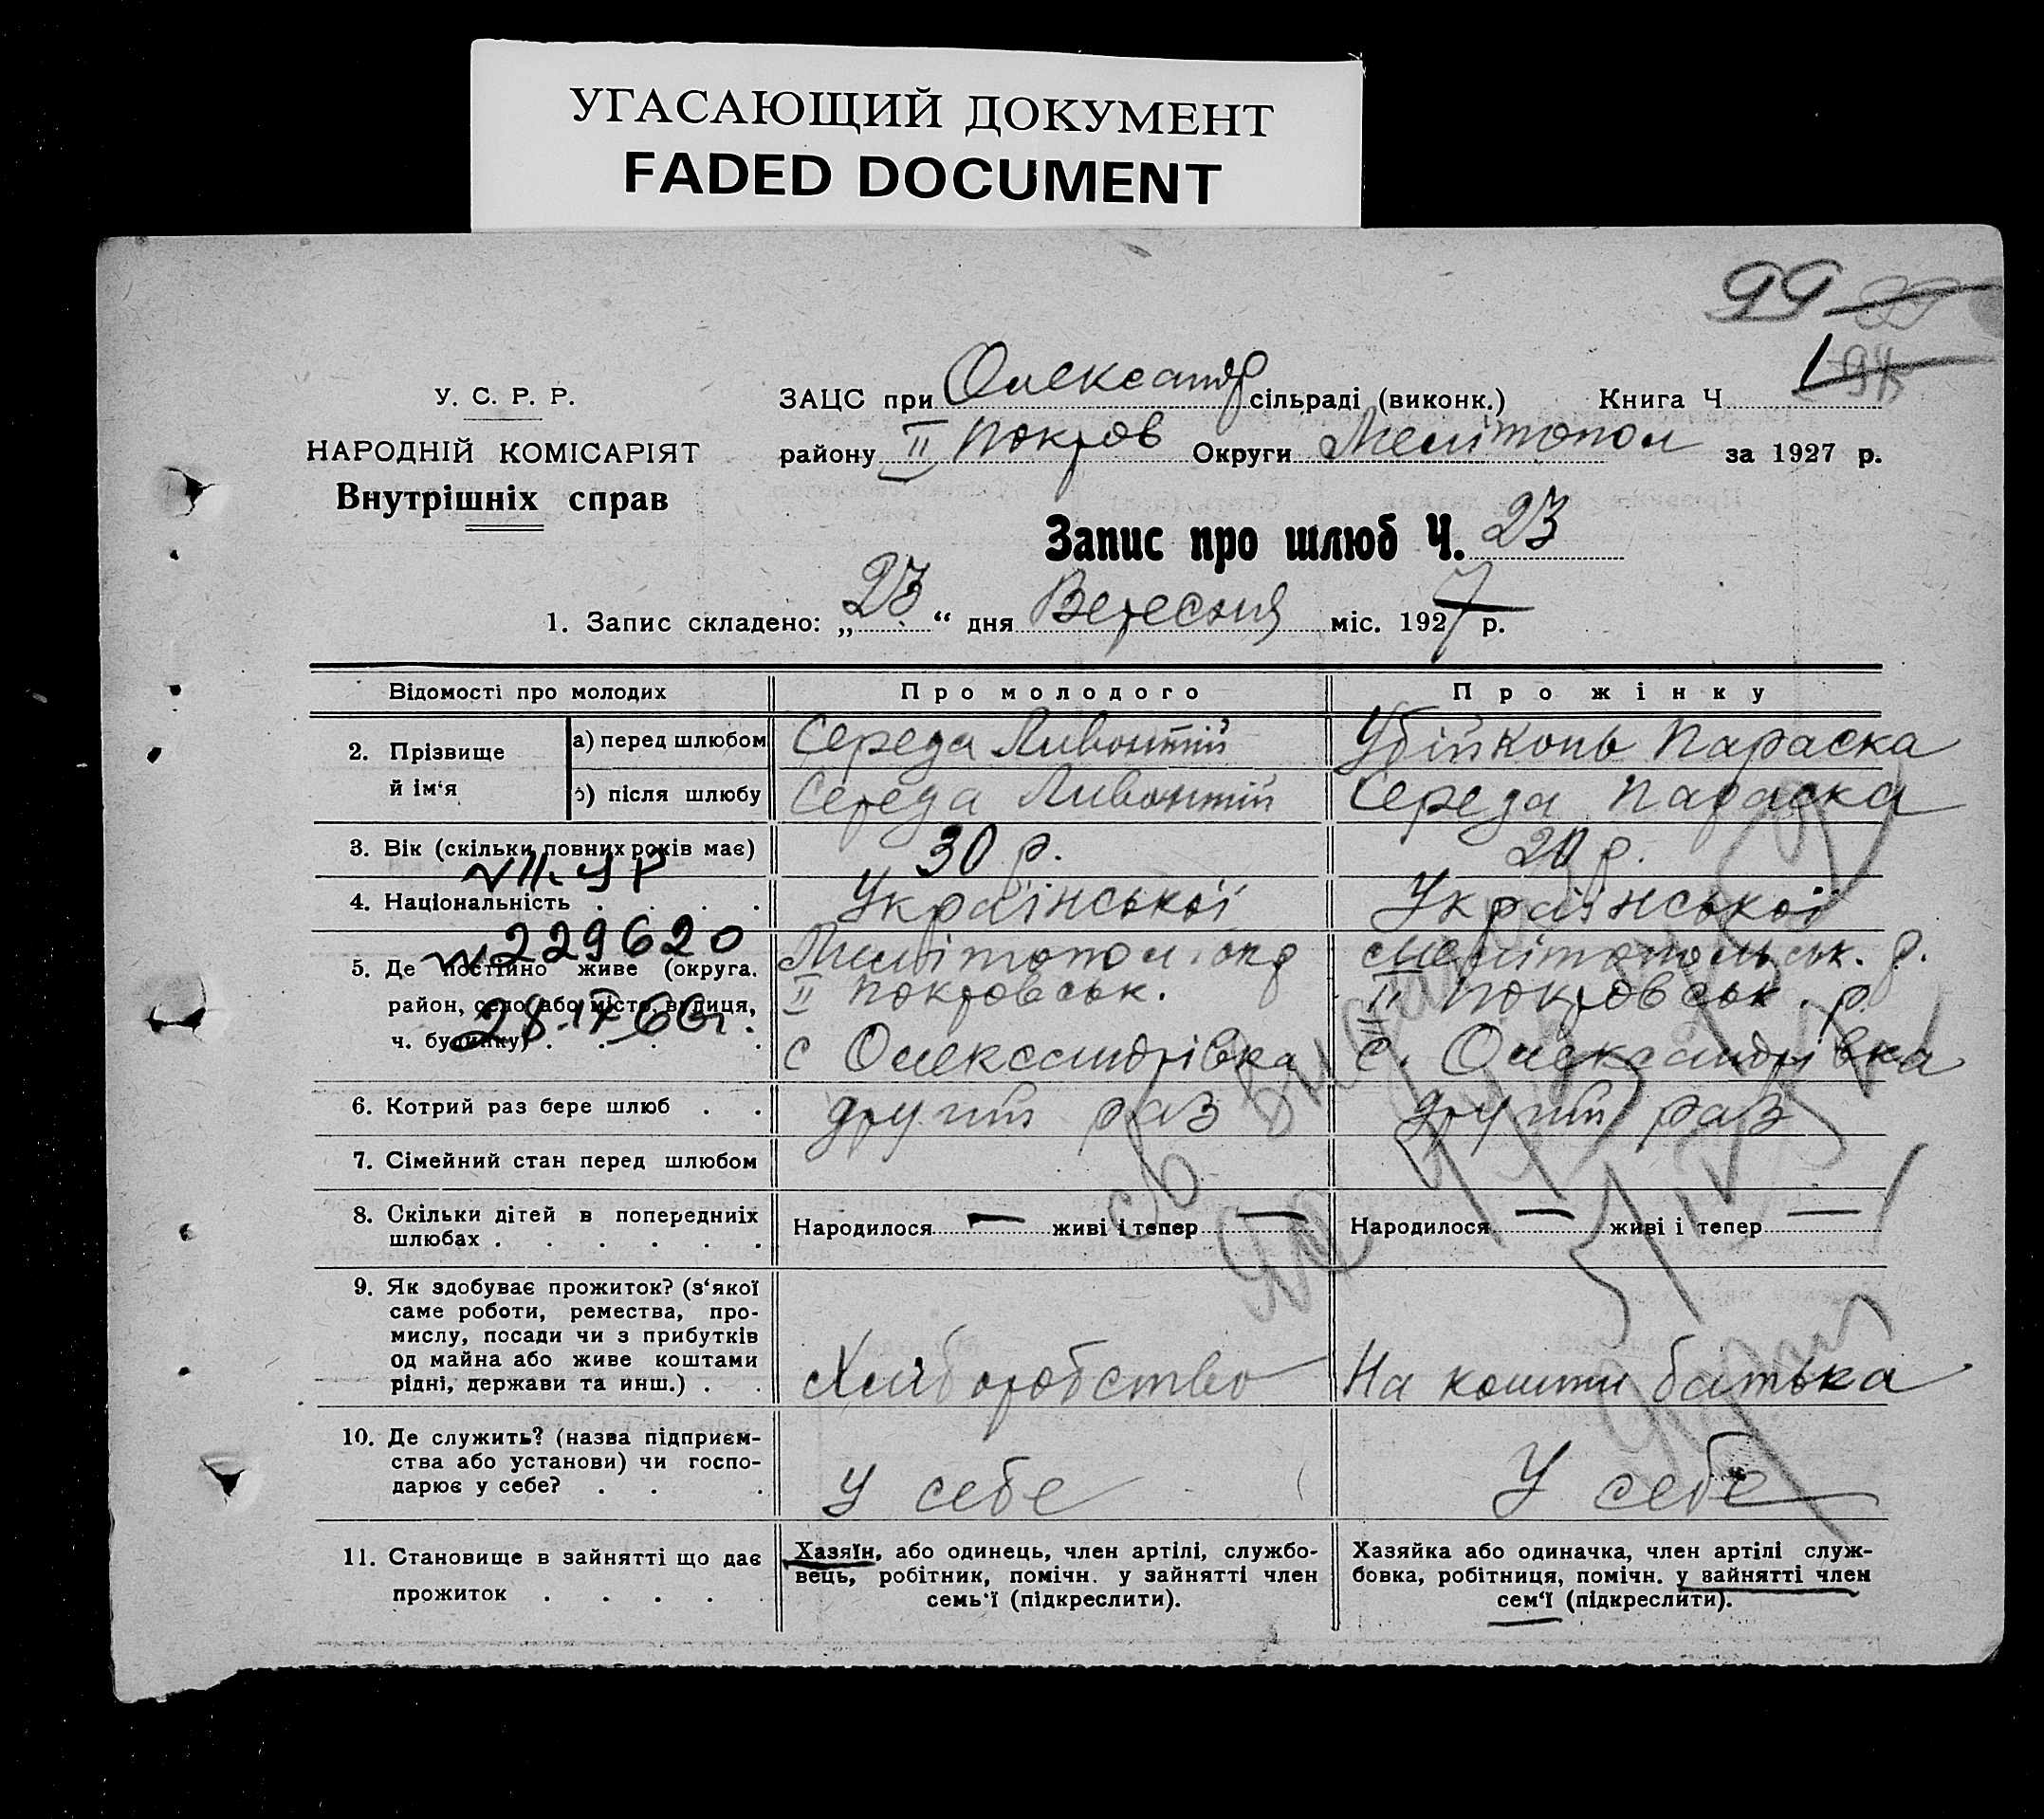 УГАСАЮЩИЙ ДОКУМЕНТ
FADED DOCUMENT
99
94
У. С. Р. Р.
НАРОДНІЙ КОМІСАРІЯТ
Внутрішніх справ
ЗАЦС при Олександр сільраді (виконк.) Книга Ч 1
району II Покров Округи Мелітопол за 1927 р.
Запис про шлюб Ч. 23
1. Запис складено: „23“ дня Вересня міс. 1927 р.
Відомості про молодих Про молодого Про жінку
2. Прізвище й ім‘я а) перед шлюбом Середа Ливонтій Убійконь Параска
б) після шлюбу Середа Ливонтій Середа Параска
3. Вік (скільки повних років має) 30 р. 20 р.
4. Національність . . . . Української Української
N229620
28.IV 66г.
5. Де постійно живе (округа, район, село або місто, вулиця, ч. будинку) . . . .
Мелітопол. окр Мелітопольськ. р.
II Покровськ. II Покровськ. р.
с Олександрівка с. Олександрівка
6. Котрий раз бере шлюб . . другий раз другий раз
7. Сімейний стан перед шлюбом
8. Скільки дітей в попередниіх шлюбах . . . . . . Народилося — живі і тепер — Народилося — живі і тепер —
9. Як здобуває прожиток? (з‘якої
саме роботи, ремества, про-
мислу, посади чи з прибутків
од майна або живе коштами
рідні, держави та инш.) . . Хліборобство На кошти батька
10. Де служить? (назва підприєм-
ства або установи) чи госпо-
дарює у себе? . . . У себе У себе
11. Становище в зайнятті що дає
прожиток . . . . .
Хазяїн, або одинець, член артілі, службо-
вець, робітник, помічн. у зайнятті член
семь‘ї (підкреслити).
Хазяйка або одиначка, член артілі служ-
бовка, робітниця, помічн. у зайнятті член
сем‘ї (підкреслити).